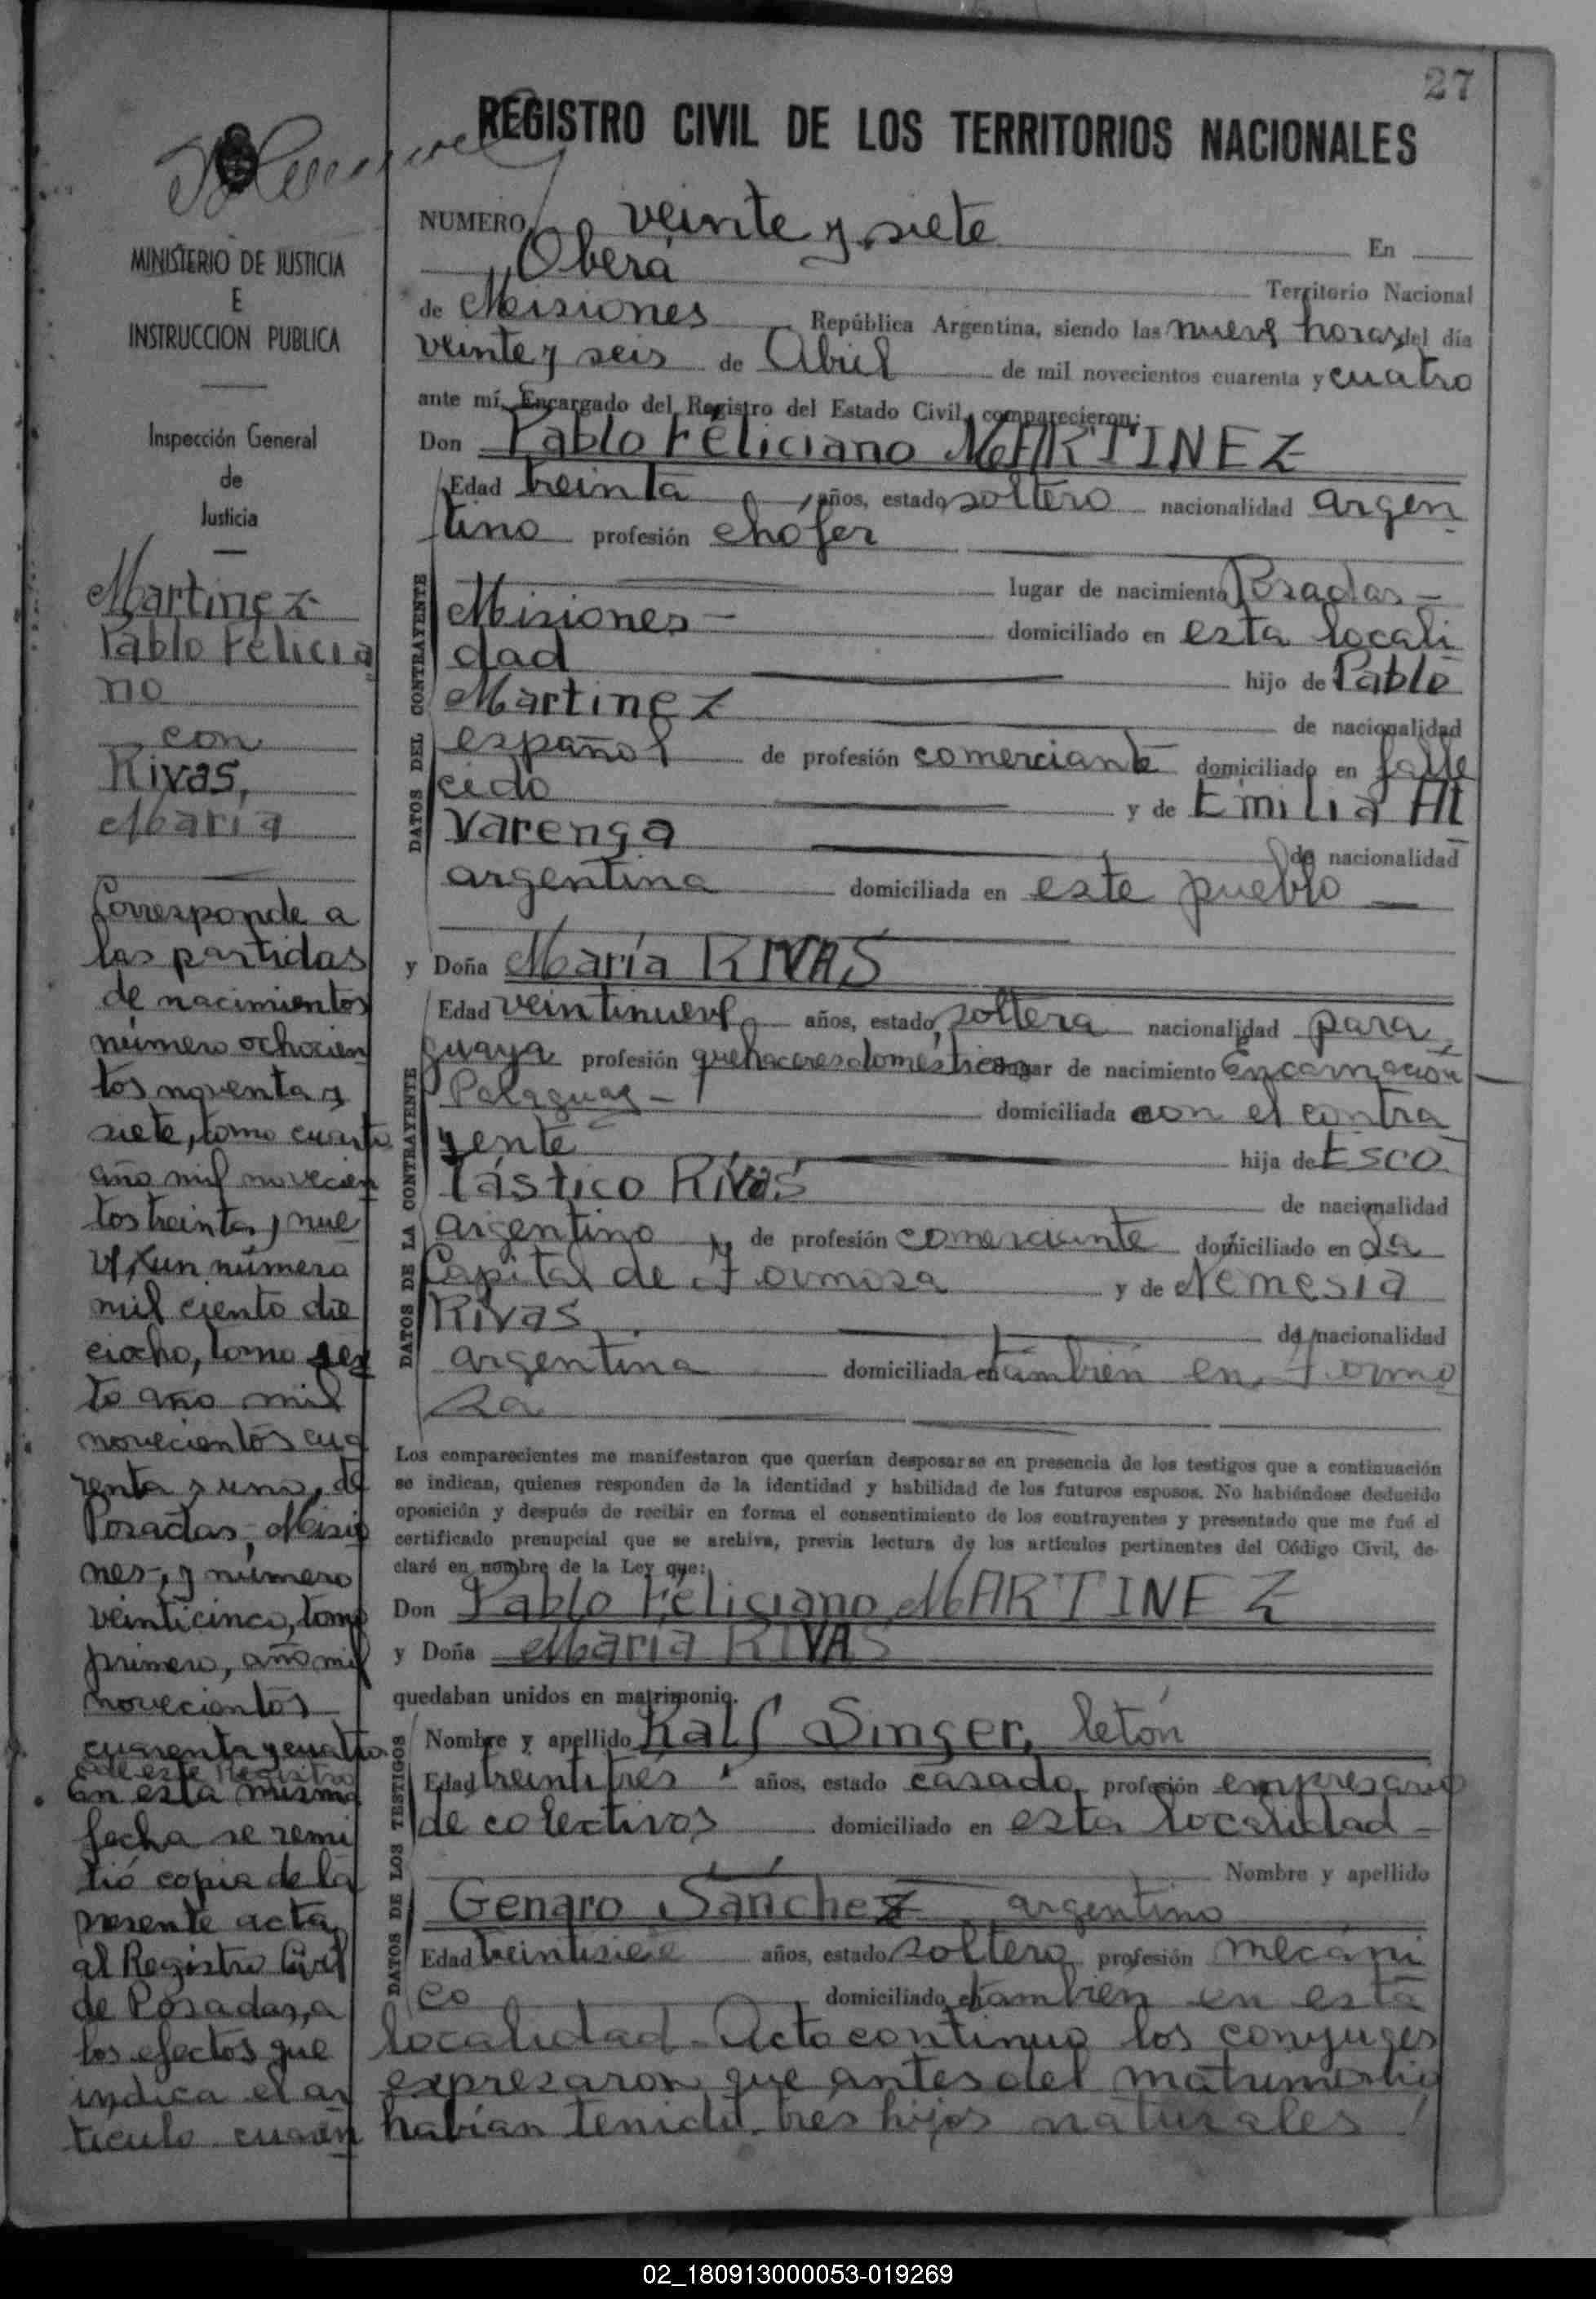 27
REGISTRO CIVIL DE LOS TERRITORIOS NACIONALES
MINISTERIO DE JUSTICIA
E
INSTRUCCION PUBLICA
Inspección General
de
Justicia
Martinez
Pablo Felicia
no
con
Rivas,
Maria
Corresponde a
las partidas
de nacimientos
número ochocien
tos noventa y
siete, tomo cuarto
año mil novecien
tos treinta y nue
ve, un número
mil ciento die
ciocho, tomo sex
to año mil
novecientos cua
renta y uno, de
Posadas, Misio
nes, y número
veinticinco, tomo
primero, año mil
novecientos
cuarenta y cuatro
de este Registro
En esta misma
fecha se remi
tió copia de la
presente acta
al Registro Civil
de Posadas, a
los efectos que
indica el ar
tículo cuaren
NUMERO veinte y siete En
Oberá Territorio Nacional
de Misiones República Argentina, siendo las nueve horas del día
veinte y seis de Abril de mil novecientos cuarenta y cuatro
ante mí, Encargado del Registro del Estado Civil, comparecieron:
Don Pablo Feliciano MARTINEZ
DATOS DEL CONTRAYENTE
Edad treinta años, estado soltero nacionalidad argen
tino profesión chófer
lugar de nacimiento Posadas -
Misiones - domiciliado en esta locali
dad hijo de Pablo
Martinez de nacionalidad
español de profesión comerciante domiciliado en falle
cido y de Emilia Al
varenga de nacionalidad
argentina domiciliada en este pueblo
y Doña María RIVAS
DATOS DE LA CONTRAYENTE
Edad veintinueve años, estado soltera nacionalidad para
guaya profesión quehaceres domésticos lugar de nacimiento Encarnación
Paraguay - domiciliada con el contra
yente hija de Esco
lástico Rivas de nacionalidad
argentino de profesión comerciante domiciliado en La
Capital de Formosa y de Nemesia
Rivas de nacionalidad
argentina domiciliada en también en Formo
sa
Los comparecientes me manifestaron que querían desposarse en presencia de los testigos que a continuación
se indican, quienes responden de la identidad y habilidad de los futuros esposos. No habiéndose deducido
oposición y después de recibir en forma el consentimiento de los contrayentes y presentado que me fué el
certificado prenupcial que se archiva, previa lectura de los artículos pertinentes del Código Civil, de-
claré en nombre de la Ley que:
Don Pablo Feliciano MARTINEZ
y Doña María RIVAS
quedaban unidos en matrimonio.
DATOS DE LOS TESTIGOS
Nombre y apellido Ralf Singer, letón
Edad treintitrés años, estado casado profesión empresario
de colectivos domiciliado en esta localidad -
Nombre y apellido
Genaro Sánchez argentino
Edad treintisiete años, estado soltero profesión mecáni
co domiciliado en también en esta
localidad - Acto continuo los conyuges
expresaron que antes del matrimonio
habían tenido tres hijos naturales
02_180913000053-019269